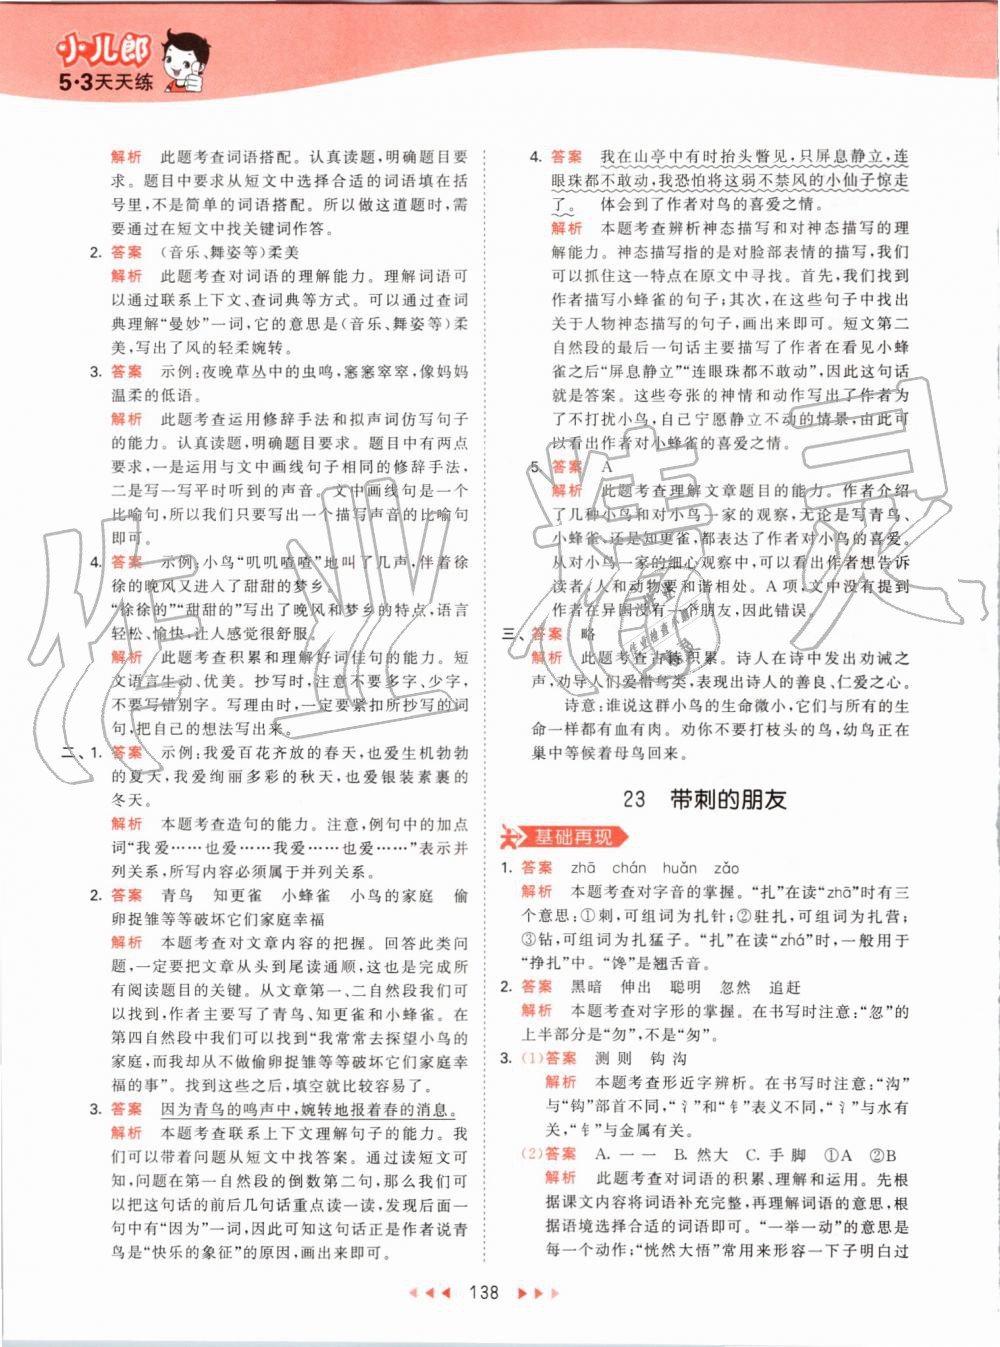 小儿郎
5·3天天练
解析 此题考查词语搭配。认真读题,明确题目要
求。题目中要求从短文中选择合适的词语填在括
号里,不是简单的词语搭配。所以做这道题时,需
要在短文中找关键词作答。
2. 答案 (音乐、舞姿等)柔美
解析 此题考查对词语的理解能力。理解词语可
以通过联系上下文、查词典等方式。可以通过查词
典理解“曼妙”一词,它的意思是(音乐、舞姿等)柔
美,写出了风的轻柔婉转。
3. 答案 示例:夜晚草丛中的虫鸣,窸窸窣窣,像妈妈
温柔的低语。
解析 此题考查运用修辞手法和拟声词仿写句子
的能力。认真读题,明确题目要求。题目中有两点
要求,一是运用与文中画线句子相同的修辞手法,
二是写一写平时听到的声音。文中画线句是一个
比喻句,所以我们只要写出一个描写声音的比喻句
即可。
4. 答案 示例:小鸟“叽叽喳喳”地叫了几声,伴着徐
徐的晚风又进入了甜甜的梦乡。
“徐徐的”“甜甜的”写出了晚风和梦乡的特点,语言
轻松、愉快,让人感觉很舒服。
解析 此题考查积累和理解好词佳句的能力。短
文语言生动、优美。抄写时,注意不要多字、少字,
不要写错别字。写理由时,一定要紧扣所抄写的词
句,把自己的想法写出来。
二、1. 答案 示例:我爱百花齐放的春天,也爱生机勃勃
的夏天,我爱绚丽多彩的秋天,也爱银装素裹的
冬天。
解析 本题考查造句的能力。注意,例句中的加点
词“我爱……也爱……我爱……也爱……”表示并
列关系,所写内容必须属于并列关系。
2. 答案 青鸟 知更雀 小蜂雀 小鸟的家庭 偷
卵捉雏等等破坏它们家庭幸福
解析 本题考查对文章内容的把握。回答此类问
题,一定要把文章从头到尾读通顺,这也是完成所
有阅读题目的关键。从文章第一、二自然段我们可
以找到,作者主要写了青鸟、知更雀和小蜂雀。在
第四自然段中我们可以找到“我常常去探望小鸟的
家庭,而我却从不做偷卵捉雏等等破坏它们家庭幸
福的事”。找到这些之后,填空就比较容易了。
3. 答案 因为青鸟的鸣声中,婉转地报着春的消息。
解析 本题考查联系上下文理解句子的能力。我们
可以带着问题从短文中找答案。通过读短文可知,
问题在第一自然段的倒数第二句,那么,我们就可以
把这句话的前后几句话重点读一读,发现在后面一
句中有“因为”一词,因此可知这句话正是作者说青
鸟是“快乐的象征”的原因,画出来即可。
4. 答案 我在山亭中有时抬头瞥见,只屏息静立,连
眼珠都不敢动,我恐怕将这弱不禁风的小仙子惊走
了。 体会到了作者对鸟的喜爱之情。
解析 本题考查辨析神态描写和对神态描写的理
解能力。神态描写指的是对脸部表情的描写,我们
可以抓住这一特点在原文中寻找。首先,我们找到
作者描写小蜂雀的句子;其次,在这些句子中找出
关于人物神态描写的句子,画出来即可。短文第二
自然段的最后一句话主要描写了作者在看见小蜂
雀之后“屏息静立”“连眼珠都不敢动”,因此这句话
就是答案。这些夸张的神情和动作写出了作者为
了不打扰小鸟,自己宁愿静立不动的情景,由此可
以看出作者对小蜂雀的喜爱之情。
5. 答案 A
解析 此题考查理解文章题目的能力。作者介绍
了几种小鸟和对小鸟一家的观察,无论是写青鸟、
小蜂雀,还是知更雀,都表达了作者对鸟的喜爱。
从对小鸟一家的细心观察中,可以看出作者想告诉
读者,人和动物要和谐相处。A 项,文中没有提到
作者在异国没有一个朋友,因此错误。
三、答案 略
解析 此题考查古诗积累。诗人在诗中发出劝诫之
声,劝导人们爱惜鸟类,表现出诗人的善良、仁爱之心。
诗意:谁说这群小鸟的生命微小,它们与所有的生
命一样都有血有肉。劝你不要打枝头的鸟,幼鸟正在
巢中等候着母鸟回来。
23 带刺的朋友
基础再现
1. 答案 zhā chán huǎn zǎo
解析 本题考查对字音的掌握。“扎”在读“zhā”时有三
个意思:①刺,可组词为扎针;②驻扎,可组词为扎营;
③钻,可组词为扎猛子。“扎”在读“zhá”时,一般用于
“挣扎”中。“馋”是翘舌音。
2. 答案 黑暗 伸出 聪明 忽然 追赶
解析 本题考查对字形的掌握。在书写时注意:“忽”的
上半部分是“勿”,不是“匆”。
3. (1)答案 测 则 钩 沟
解析 本题考查形近字辨析。在书写时注意:“沟”
与“钩”部首不同,“氵”和“钅”表义不同,“氵”与水有
关,“钅”与金属有关。
(2)答案 A. 一 一 B. 然大 C. 手 脚 ①A ②B
解析 此题考查对词语的积累、理解和运用。先根
据课文内容将词语补充完整,再理解词语的意思,根
据语境选择合适的词语即可。“一举一动”的意思是
每一个动作;“恍然大悟”常用来形容一下子明白过
138
作业精灵